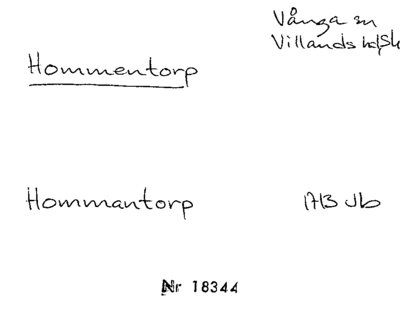 Vånga sn
Villands hd, Sk
Hommentorp
Hommantorp 1713 Jb
Nr 18344